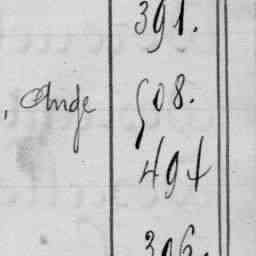 391.
, Ange 508.
494
396.